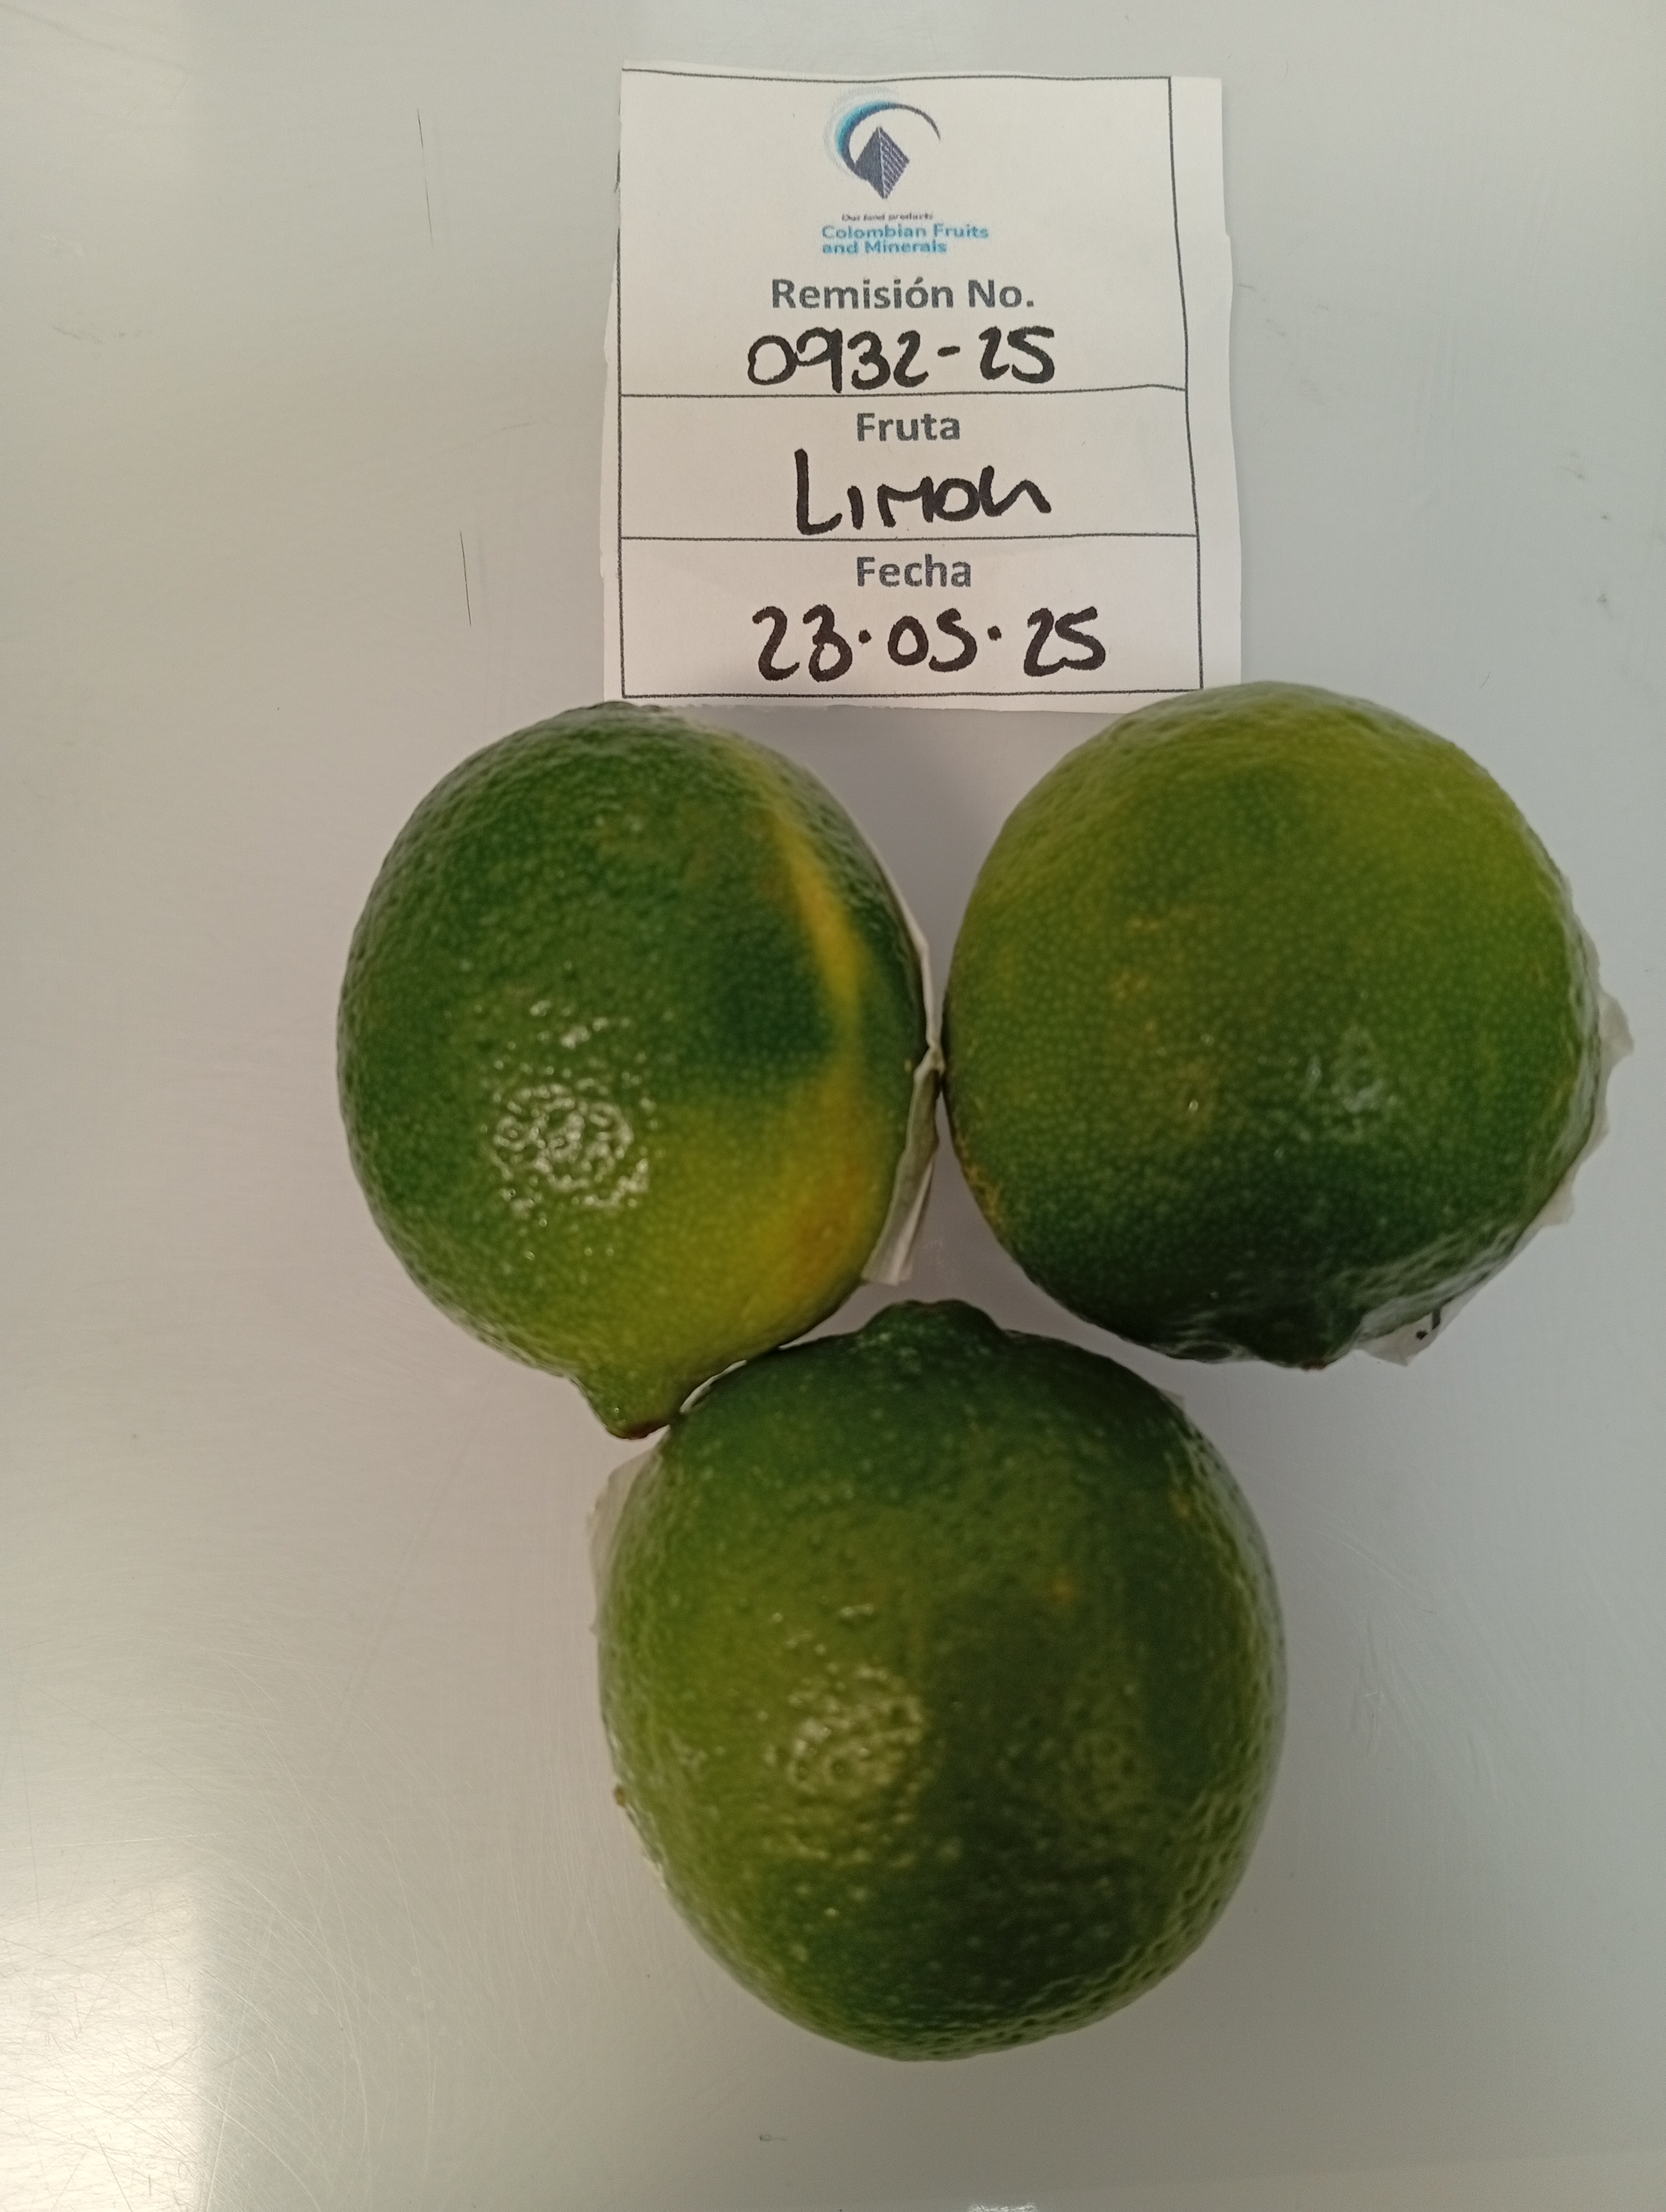 Our land products
Colombian Fruits
and Minerals
Remisión No.
0932-25
Fruta
Limon
Fecha
23.05.25